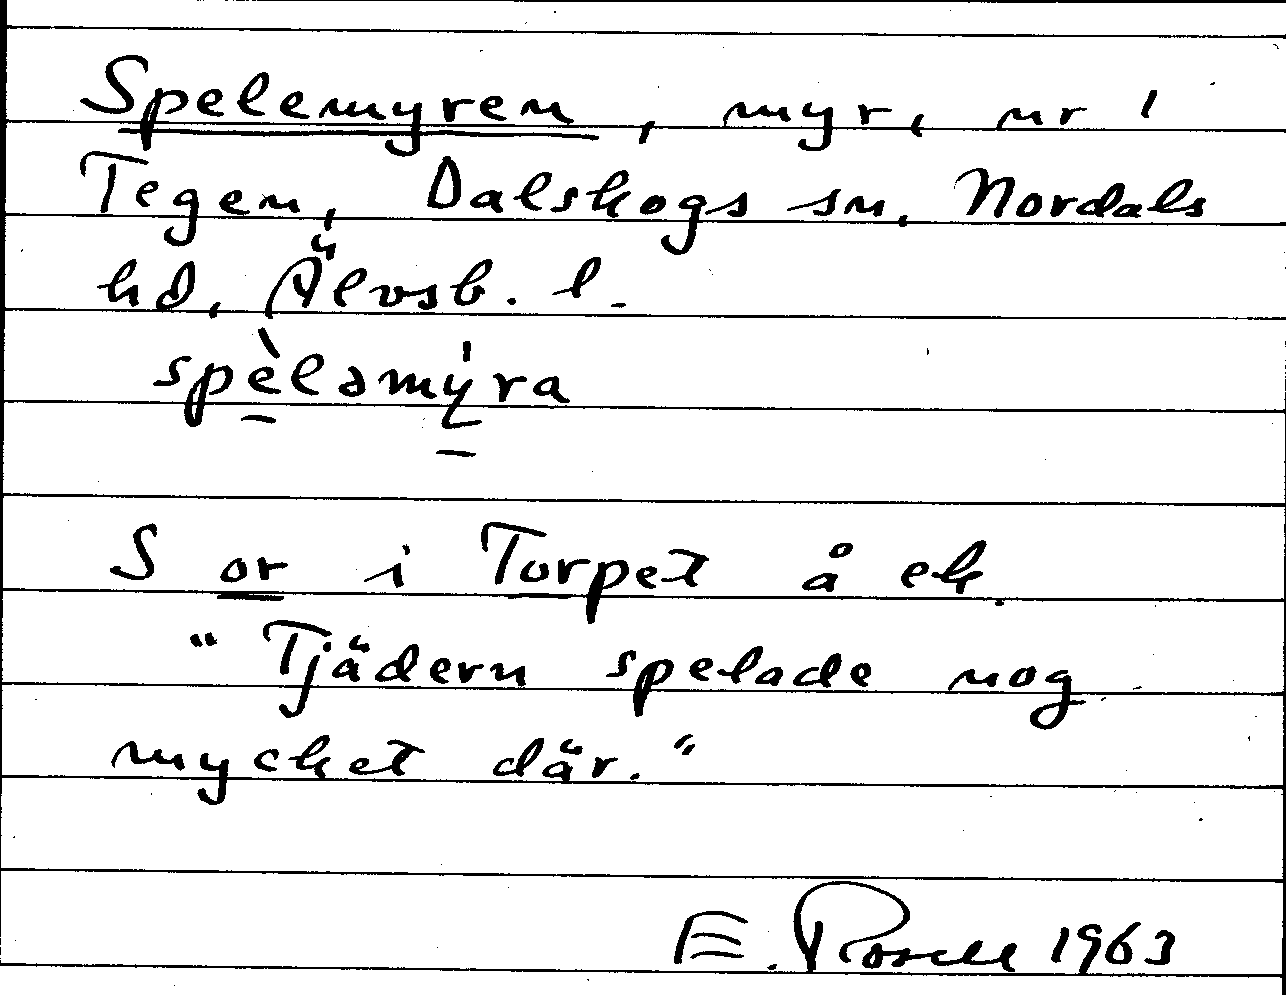 Spelemyren, myr, nr 1
Tegen, Dalskogs sn, Nordals
hd, Älvsb. l.
spèləmýra
S or i Torpet å ek.
"Tjädern spelade nog
mycket där."
E. Rosell 1963